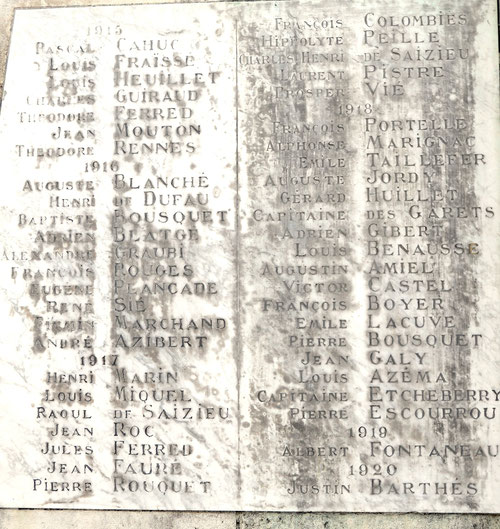 1915
Pascal Cahuc
Louis Fraisse
Louis Heuillet
Charles Guiraud
Théodore Ferred
Jean Mouton
Théodore Rennes
1916
Auguste Blanché
Henri de Dufau
Baptiste Bousquet
Adrien Blatge
Alexandre Graubi
François Rouges
Eugène Plancade
René Sié
Firmin Marchand
André Azibert
1917
Henri Marin
Louis Miquel
Raoul de Saizieu
Jean Roc
Jules Ferred
Jean Faure
Pierre Rouquet
François Colombiès
Hippolyte Peille
Charles Henri de Saizieu
Laurent Pistre
Prosper Vié
1918
François Portelle
Alphonse Marignac
Emile Taillefer
Auguste Jordy
Gérard Huillet
Capitaine des Garets
Adrien Gibert
Louis Benausse
Augustin Amiel
Victor Castel
François Boyer
Emile Lacuve
Pierre Bousquet
Jean Galy
Louis Azéma
Capitaine Etcheberry
Pierre Escourrou
1919
Albert Fontaneau
1920
Justin Barthes